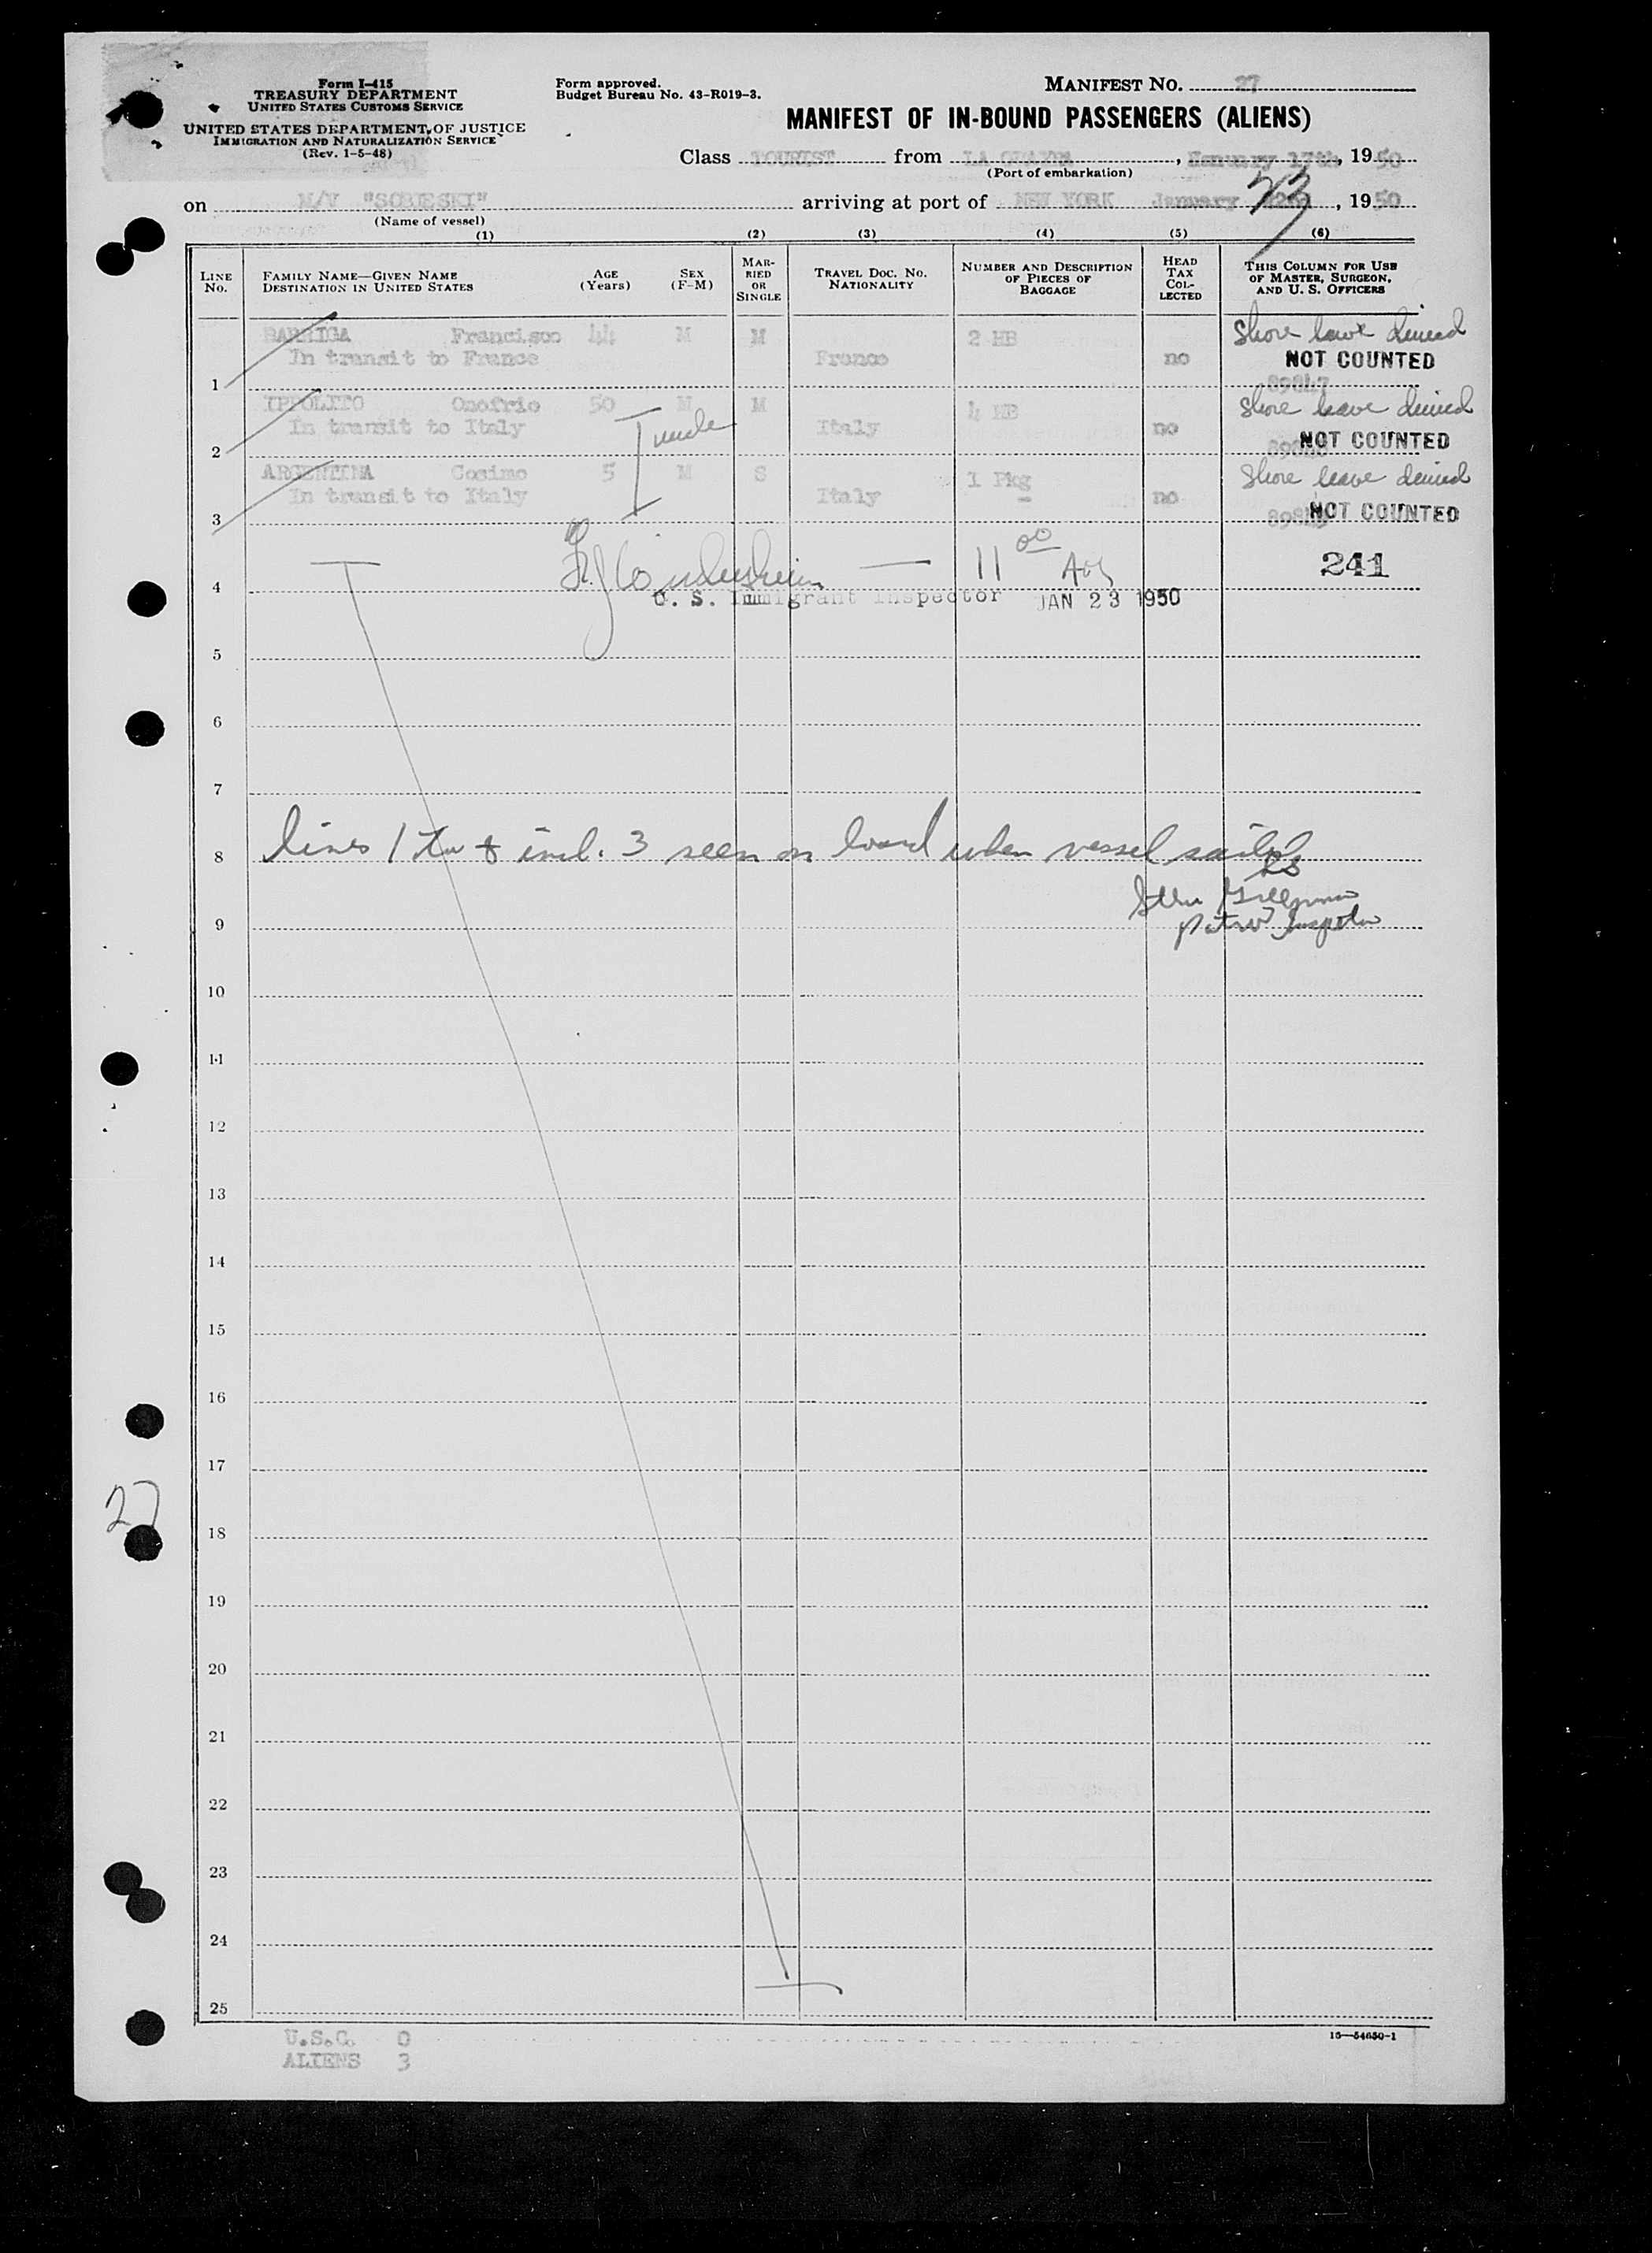 Form I-415
TREASURY DEPARTMENT
UNITED STATES CUSTOMS SERVICE
UNITED STATES DEPARTMENT OF JUSTICE
IMMIGRATION AND NATURALIZATION SERVICE
(Rev. 1-5-48)
Form approved.
Budget Bureau No. 43-R019-3.
MANIFEST NO. 27
MANIFEST OF IN-BOUND PASSENGERS (ALIENS)
Class TOURIST from LA GUAYRA, January 17th, 1950
(Port of embarkation)
on M/V "SOBIESKI" arriving at port of NEW YORK January 23, 1950
(Name of vessel)
(1) (2) (3) (4) (5) (6)
LINE NO.
FAMILY NAME—GIVEN NAME
DESTINATION IN UNITED STATES
AGE (Years)
SEX (F-M)
MARRIED OR SINGLE
TRAVEL DOC. NO. NATIONALITY
NUMBER AND DESCRIPTION OF PIECES OF BAGGAGE
HEAD TAX COLLECTED
THIS COLUMN FOR USE OF MASTER, SURGEON, AND U. S. OFFICERS
BARRIGA Francisco 44 M M 2 HB Shore leave denied
In transit to France France no NOT COUNTED
1 89847
IPPOLITO Onofrio 50 M M 4 HB Shore leave denied
In transit to Italy uncle Italy no
2 NOT COUNTED
ARGENTINA Cosimo 5 M S 1 Pkg Shore leave denied
In transit to Italy Italy no
3 NOT COUNTED
11 00 241
4 U. S. Immigrant Inspector JAN 23 1950
5
6
7
8 lines 1 to & incl. 3 seen on board when vessel sailed
9 Patrol Inspector
10
11
12
13
14
15
16
17
27
18
19
20
21
22
23
24
25
U.S.C. 0
ALIENS 3
16—54650-1